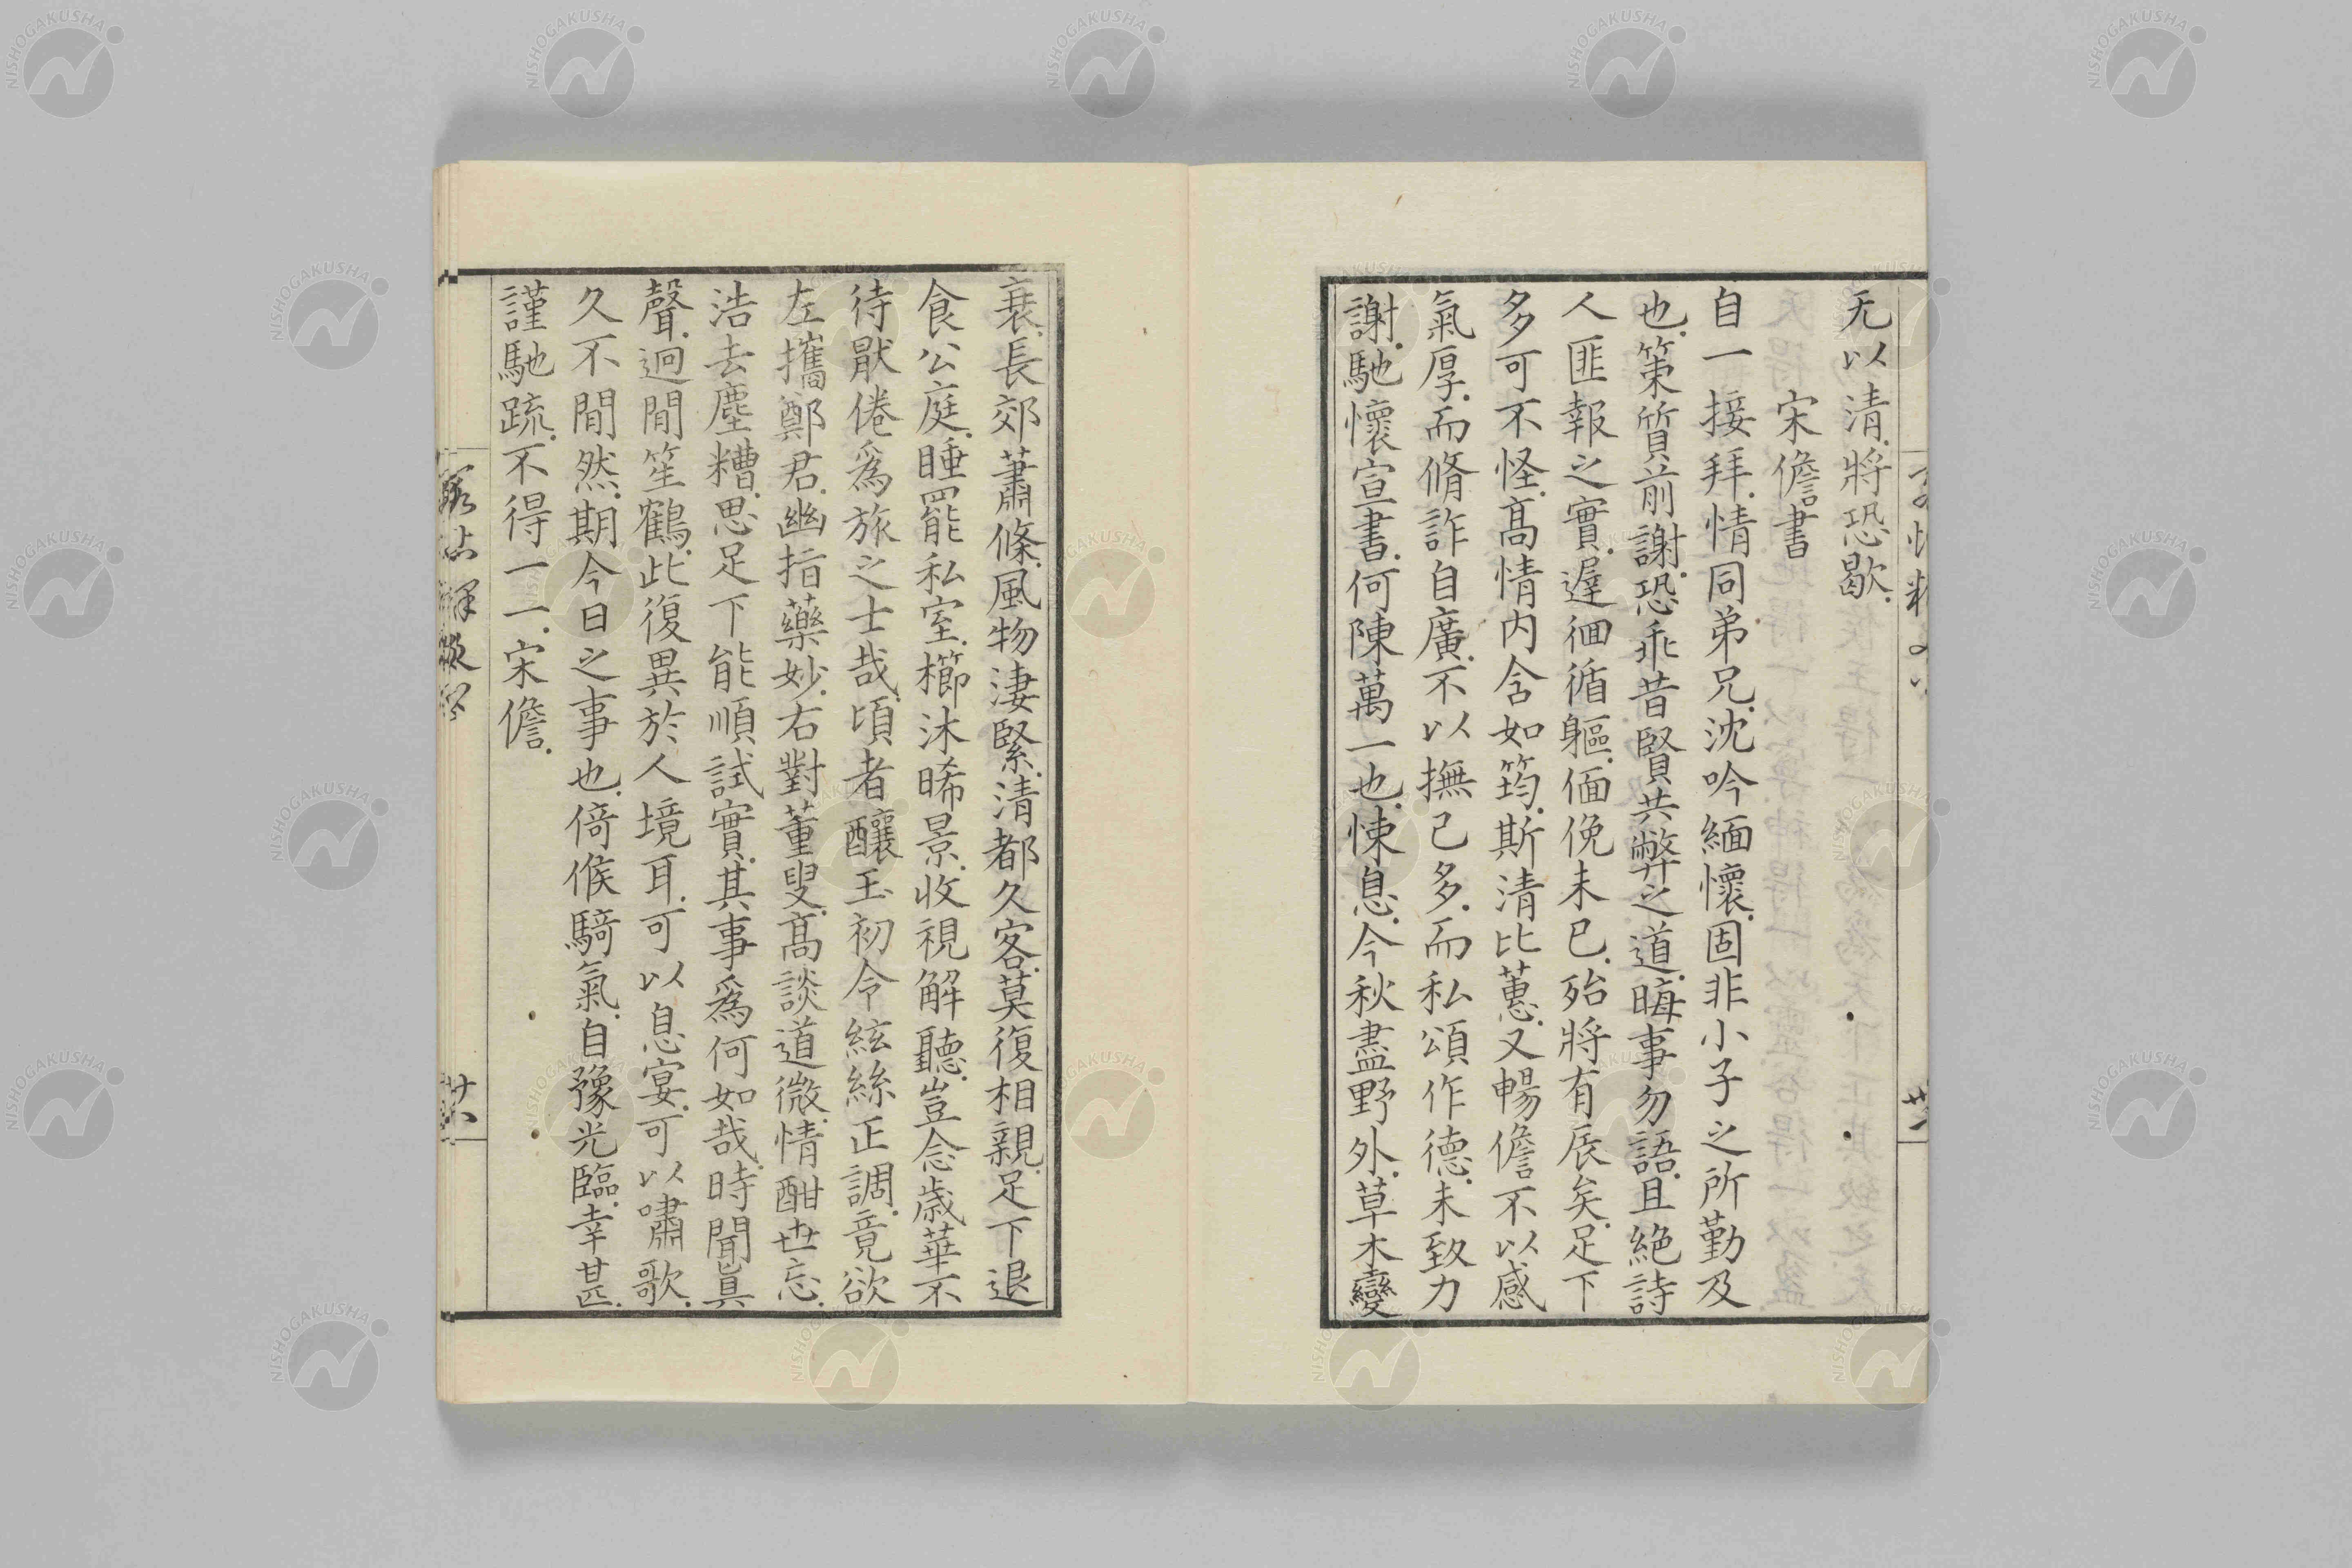 无以清.將恐歇.
宋儋書
自一接拜.情同弟兄.沈吟緬懷.固非小子之所勤及
也.策質前謝.恐乖昔賢共弊之道.晦事勿語.且絶詩
人匪報之實.遲徊循軀.偭俛未已.殆將有辰矣.足下
多可不怪.髙情内含如筠.斯清比蕙.又暢儋不以感
氣厚.而脩詐自廣.不以撫己多.而私頌作德.未致力
謝.馳懷宣書.何陳萬一也.悚息.今秋盡野外.草木變
衰.長郊蕭條.風物淒緊.清都久客.莫復相親.足下退
食公庭.睡罷私室.櫛沐晞景.收視解聽.豈念歳華不
待厭倦爲旅之士哉.頃者釀玉初令絃絲正調.竟欲
左攜鄭君.幽指藥妙.右對董叟.髙談道微.情酣世忘.
浩去塵糟.思足下能順試實.其事爲何如哉.時聞眞
聲.迥間笙鶴.此復異於人境耳.可以息宴.可以嘯歌.
久不間然.期今日之事也.倚候騎氣.自豫光臨.幸甚.
謹馳疏.不得一一.宋儋.
廿六
NISHOGAKUSHA